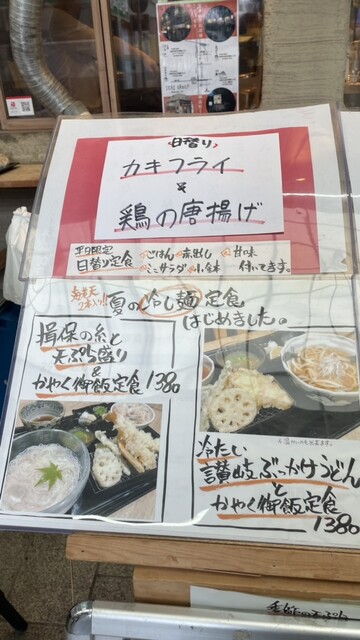 日替り
カキフライ
&
鶏の唐揚げ
平日限定
日替り定食
ごはん 赤出し 甘味
ミニサラダ 小鉢 付いてます。
海老天
2本入り!!
夏の冷し麺定食
はじめました。
揖保の糸と
天ぷら盛り
&
かやく御飯定食 1380
冷たい
讃岐ぶっかけうどん
と
かやく御飯定食
1380
季節の天ぷら